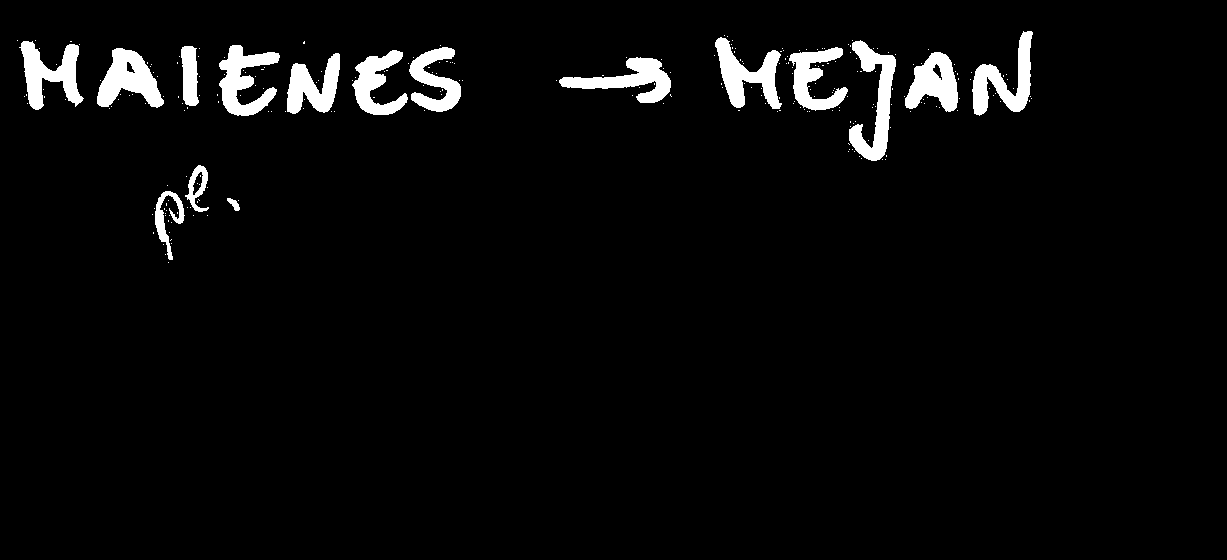 MAIENES → MEJAN
pl.